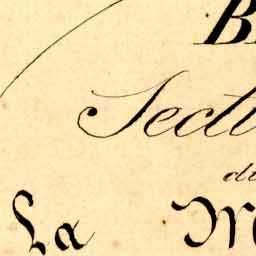 B
Secti
du
La M